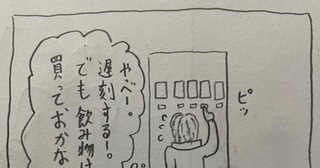 ピッ
やべー。
遅刻するー。
でも飲み物は
買っておかな